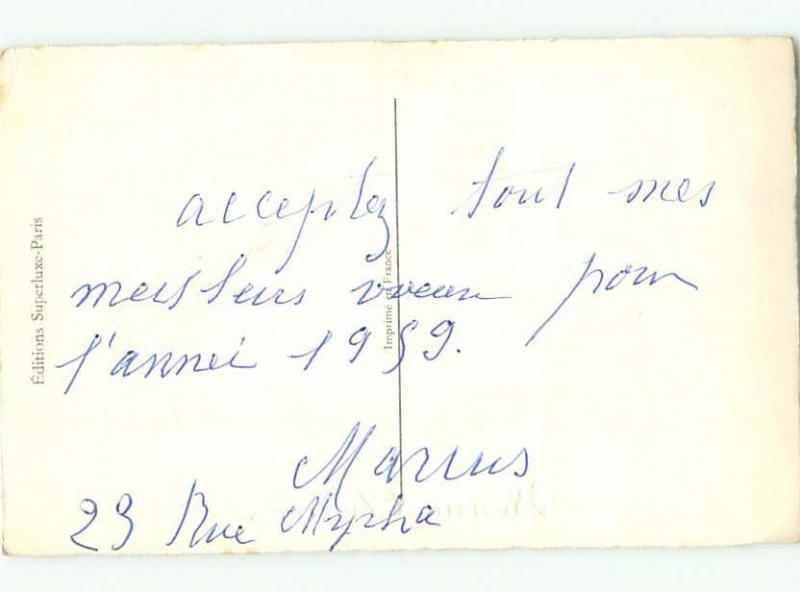 Éditions Superluxe-Paris
Imprimé en France
acceptez tout mes
meilleurs voeux pour
l'année 1959.
Marius
23 Rue Myrha